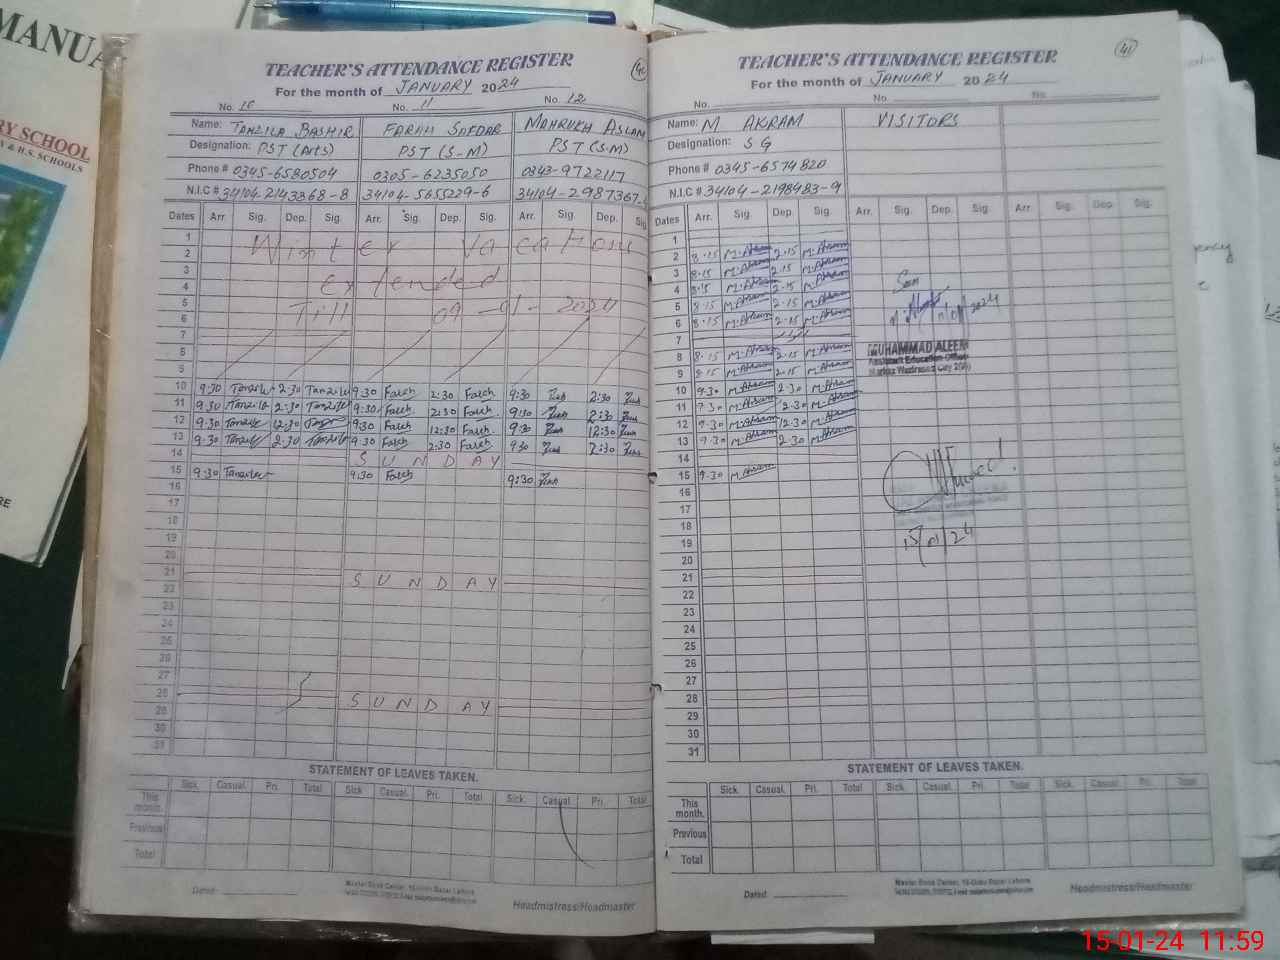 MANUA
RY SCHOOL
Y & H.S. SCHOOLS
RE
TEACHER'S ATTENDANCE REGISTER
For the month of JANUARY 2024
No. 10 No. 11 No. 12
Name: TANZILA BASHIR FARAH SAFDAR MAHRUKH ASLAM
Designation: PST (Arts) PST (S-M) PST (S.M)
Phone # 0345-6580504 0305-6235050 0343-9722117
N.I.C # 34104-2143368-8 34104-5655229-6 34104-2987367-
Dates Arr. Sig. Dep. Sig. Arr. Sig. Dep. Sig. Arr. Sig. Dep. Sig
1
2 Winter Vacation
3
4 Extended
5
6 Till 09-01-2024
7
8
9
10 9:30 Tanzila 2:30 Tanzila 9:30 Farah 2:30 Farah 9:30 2:30
11 9:30 Tanzila 2:30 Tanzila 9:30 Farah 2:30 Farah 9:30 2:30
12 9:30 Tanzila 12:30 Tanzila 9:30 Farah 12:30 Farah 9:30 12:30
13 9:30 Tanzila 2:30 Tanzila 9:30 Farah 2:30 Farah 9:30 2:30
14 SUNDAY
15 9:30 Tanzila 9:30 Farah 9:30
16
17
18
19
20
21 SUNDAY
22
23
24
25
26
27
28 SUNDAY
29
30
31
STATEMENT OF LEAVES TAKEN.
Sick. Casual. Pri. Total Sick. Casual. Pri. Total Sick. Casual. Pri. Total
This month.
Previous
Total
Dated
Master Book Center, 16-Urdu Bazar Lahore
Headmistress/Headmaster
41
TEACHER'S ATTENDANCE REGISTER
For the month of JANUARY 2024
No. No. No.
Name: M AKRAM VISITORS
Designation: S G
Phone # 0345-6574820
N.I.C # 34104-2198483-9
Dates Arr. Sig. Dep. Sig. Arr. Sig. Dep. Sig. Arr. Sig. Dep. Sig.
1
2 8.15 M.Akram 2.15 M.Akram
3 8.15 M.Akram 2.15 M.Akram
4 8.15 M.Akram 2.15 M.Akram
5 8.15 M.Akram 2.15 M.Akram
6 8.15 M.Akram 2.15 M.Akram
7
8 8.15 M.Akram 2.15 M.Akram
9 8.15 M.Akram 2.15 M.Akram
10 9.30 M.Akram 2.30 M.Akram
11 9.30 M.Akram 2.30 M.Akram
12 9.30 M.Akram 12.30 M.Akram
13 9.30 M.Akram 2.30 M.Akram
14
15 9.30 M.Akram
16
17
18
19
20
21
22
23
24
25
26
27
28
29
30
31
MUHAMMAD ALEEM
Assistant Education Officer
15/01/24
STATEMENT OF LEAVES TAKEN.
Sick. Casual. Pri. Total Sick. Casual. Pri. Total Sick. Casual. Pri. Total
This month.
Previous
Total
Dated
Master Book Center, 16-Urdu Bazar Lahore
Headmistress/Headmaster
15-01-24 11:59